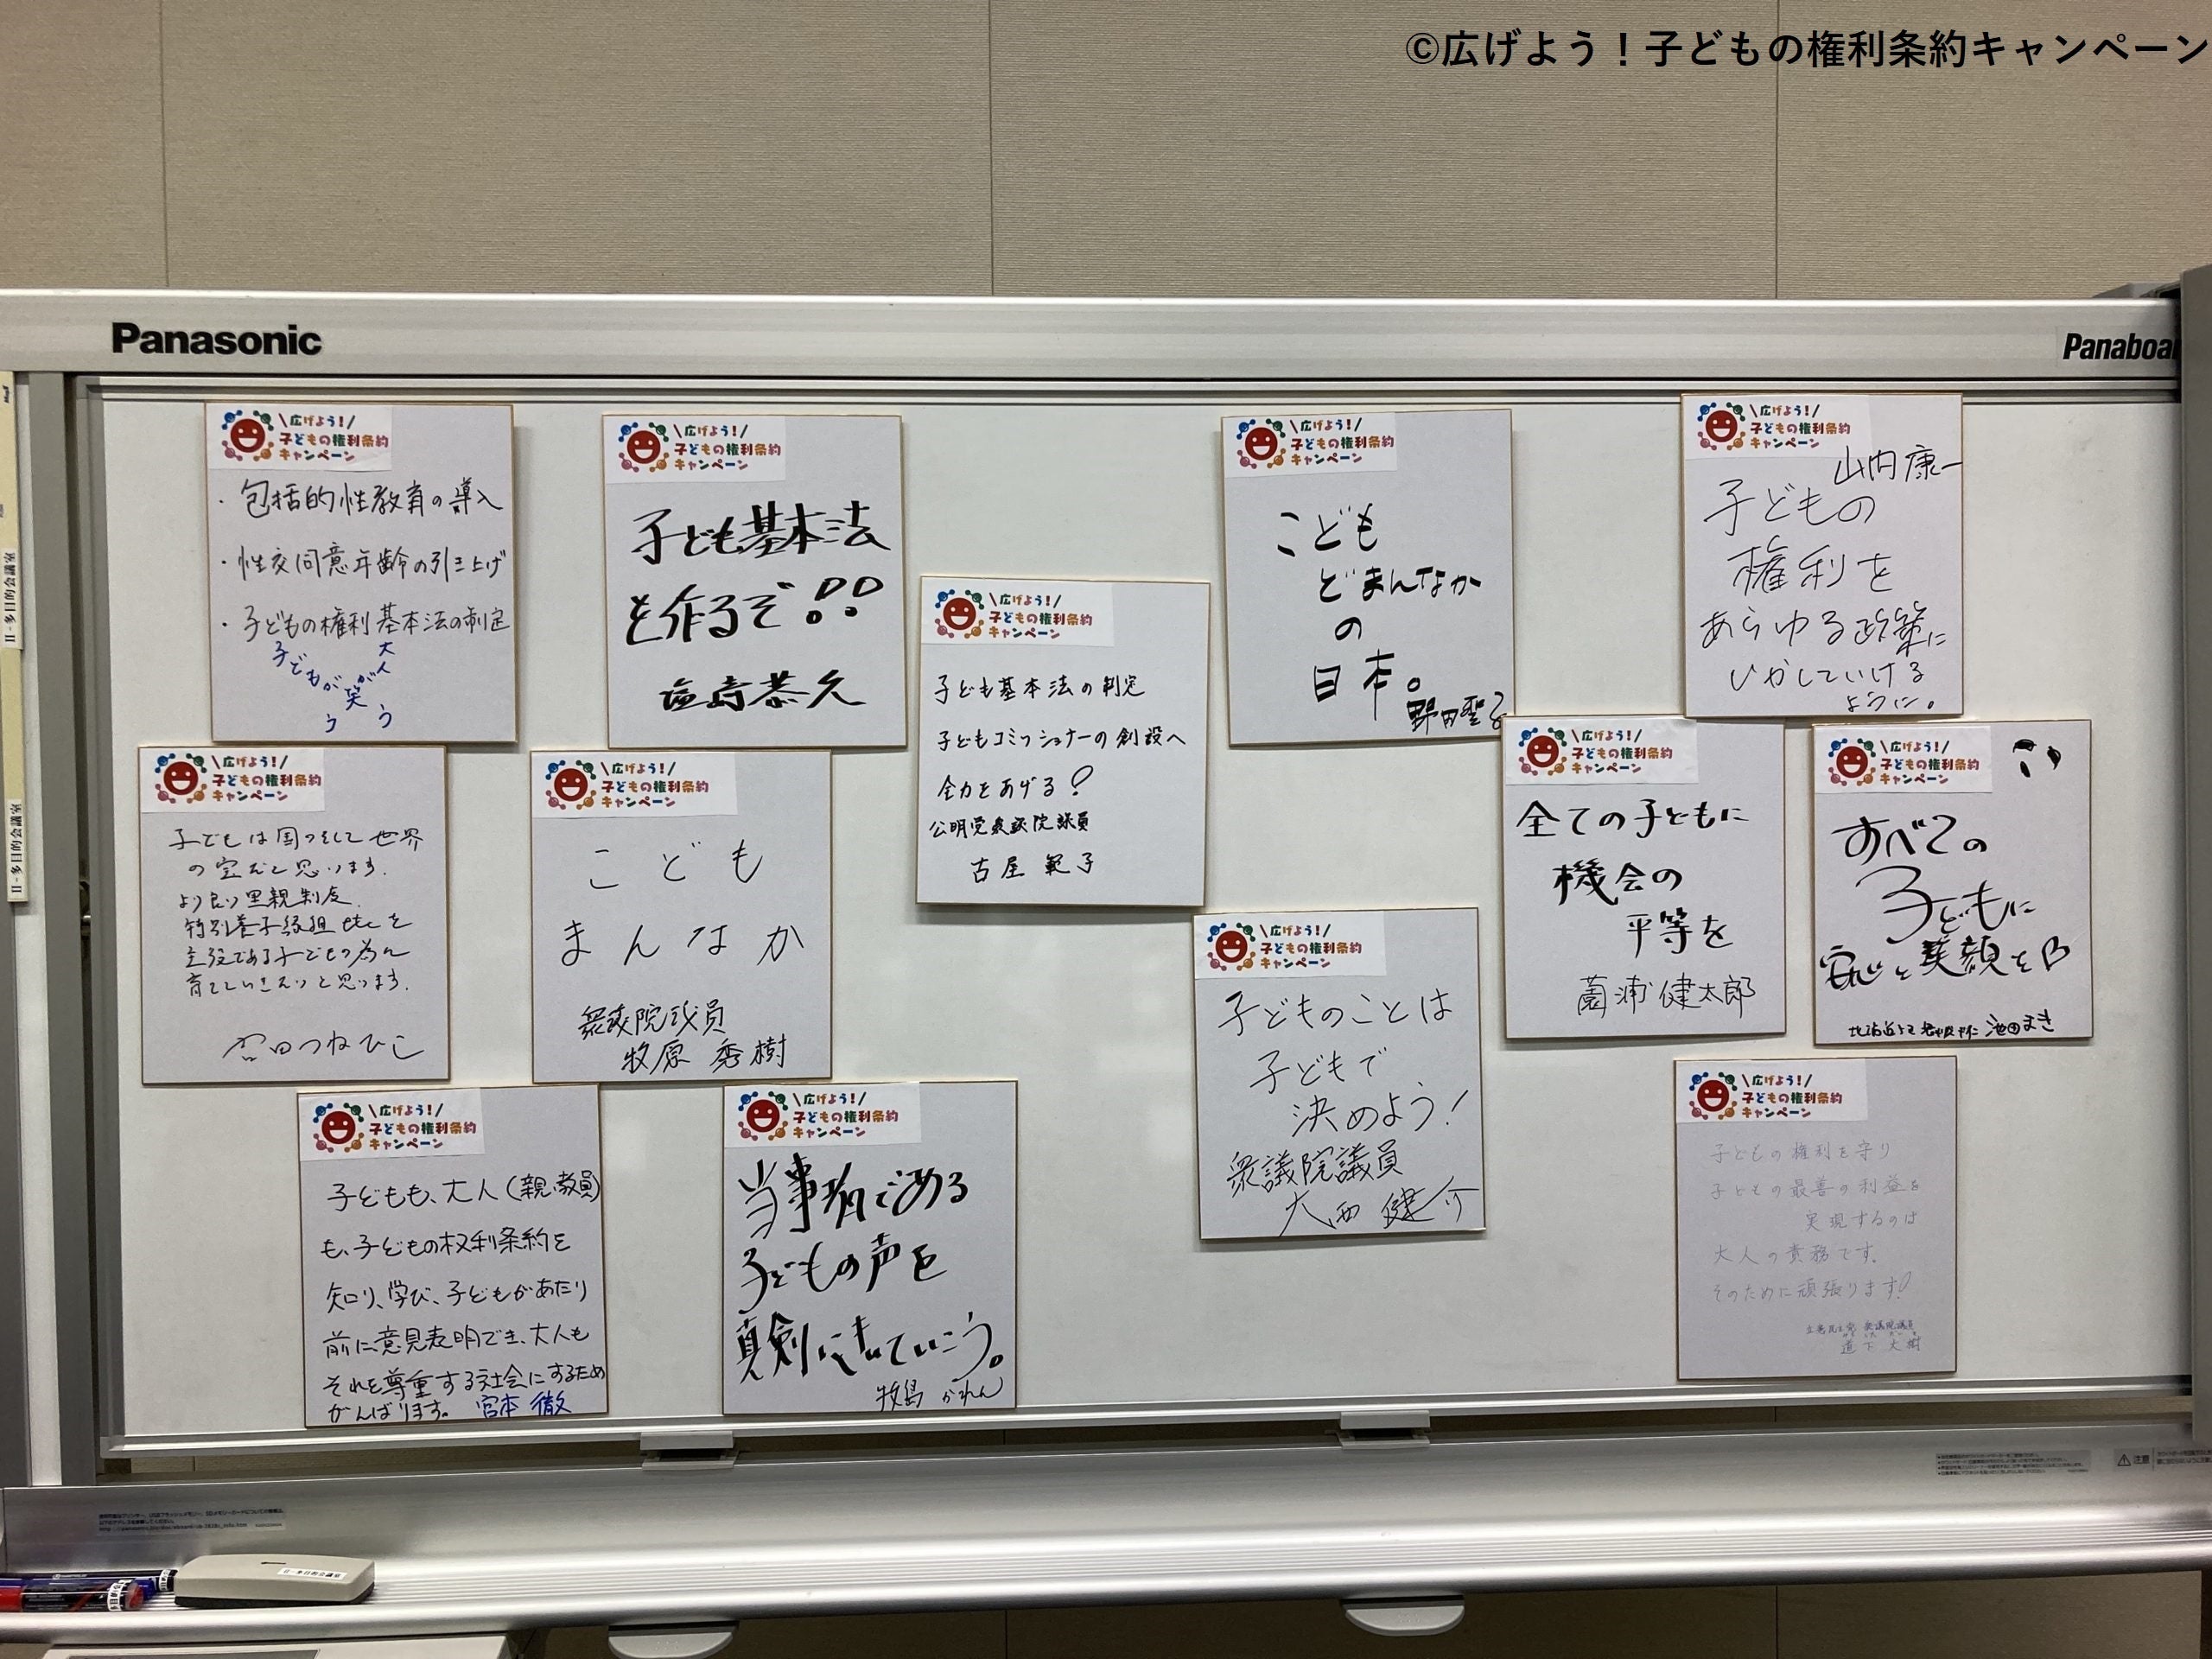 ©広げよう！子どもの権利条約キャンペーン
Panasonic
Panaboar
II-多目的会議室
II-多目的会議室
\広げよう！/
子どもの権利条約
キャンペーン
・包括的性教育の導入
・性交同意年齢の引き上げ
・子どもの権利基本法の制定
子どもが笑う
大人が笑う
\広げよう！/
子どもの権利条約
キャンペーン
子ども基本法
を作るぞ!!
塩崎恭久
\広げよう！/
子どもの権利条約
キャンペーン
子ども基本法の制定
子どもコミッショナーの創設へ
全力をあげる！
公明党衆議院議員
古屋範子
\広げよう！/
子どもの権利条約
キャンペーン
こども
どまんなか
の
日本。
野田聖子
\広げよう！/
子どもの権利条約
キャンペーン
山内康一
子どもの
権利を
あらゆる政策に
いかしていける
ように。
\広げよう！/
子どもの権利条約
キャンペーン
子どもは国のそして世界
の宝だと思います。
より良い里親制度、
特別養子縁組etcを
主役である子どもの為に
育てていきたいと思います。
つねひこ
\広げよう！/
子どもの権利条約
キャンペーン
こども
まんなか
衆議院議員
牧原秀樹
\広げよう！/
子どもの権利条約
キャンペーン
全ての子どもに
機会の
平等を
薗浦健太郎
\広げよう！/
子どもの権利条約
キャンペーン
すべての
子どもに
安心と笑顔を
池田まき
\広げよう！/
子どもの権利条約
キャンペーン
子どものことは
子どもで
決めよう！
衆議院議員
大西健介
\広げよう！/
子どもの権利条約
キャンペーン
子どもも、大人（親、教員）
も、子どもの权利条約を
知り、学び、子どもがあたり
前に意見表明でき、大人も
それを尊重する社会にするため
がんばります。 宮本徹
\広げよう！/
子どもの権利条約
キャンペーン
当事者である
子どもの声を
真剣にきいていこう。
牧島かれん
\広げよう！/
子どもの権利条約
キャンペーン
子どもの権利を守り
子どもの最善の利益を
実現するのは
大人の責務です。
そのために頑張ります！
立憲民主党 衆議院議員
道下大樹
注意
II-多目的会議室